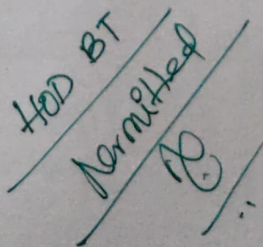 HOD BT
Permitted